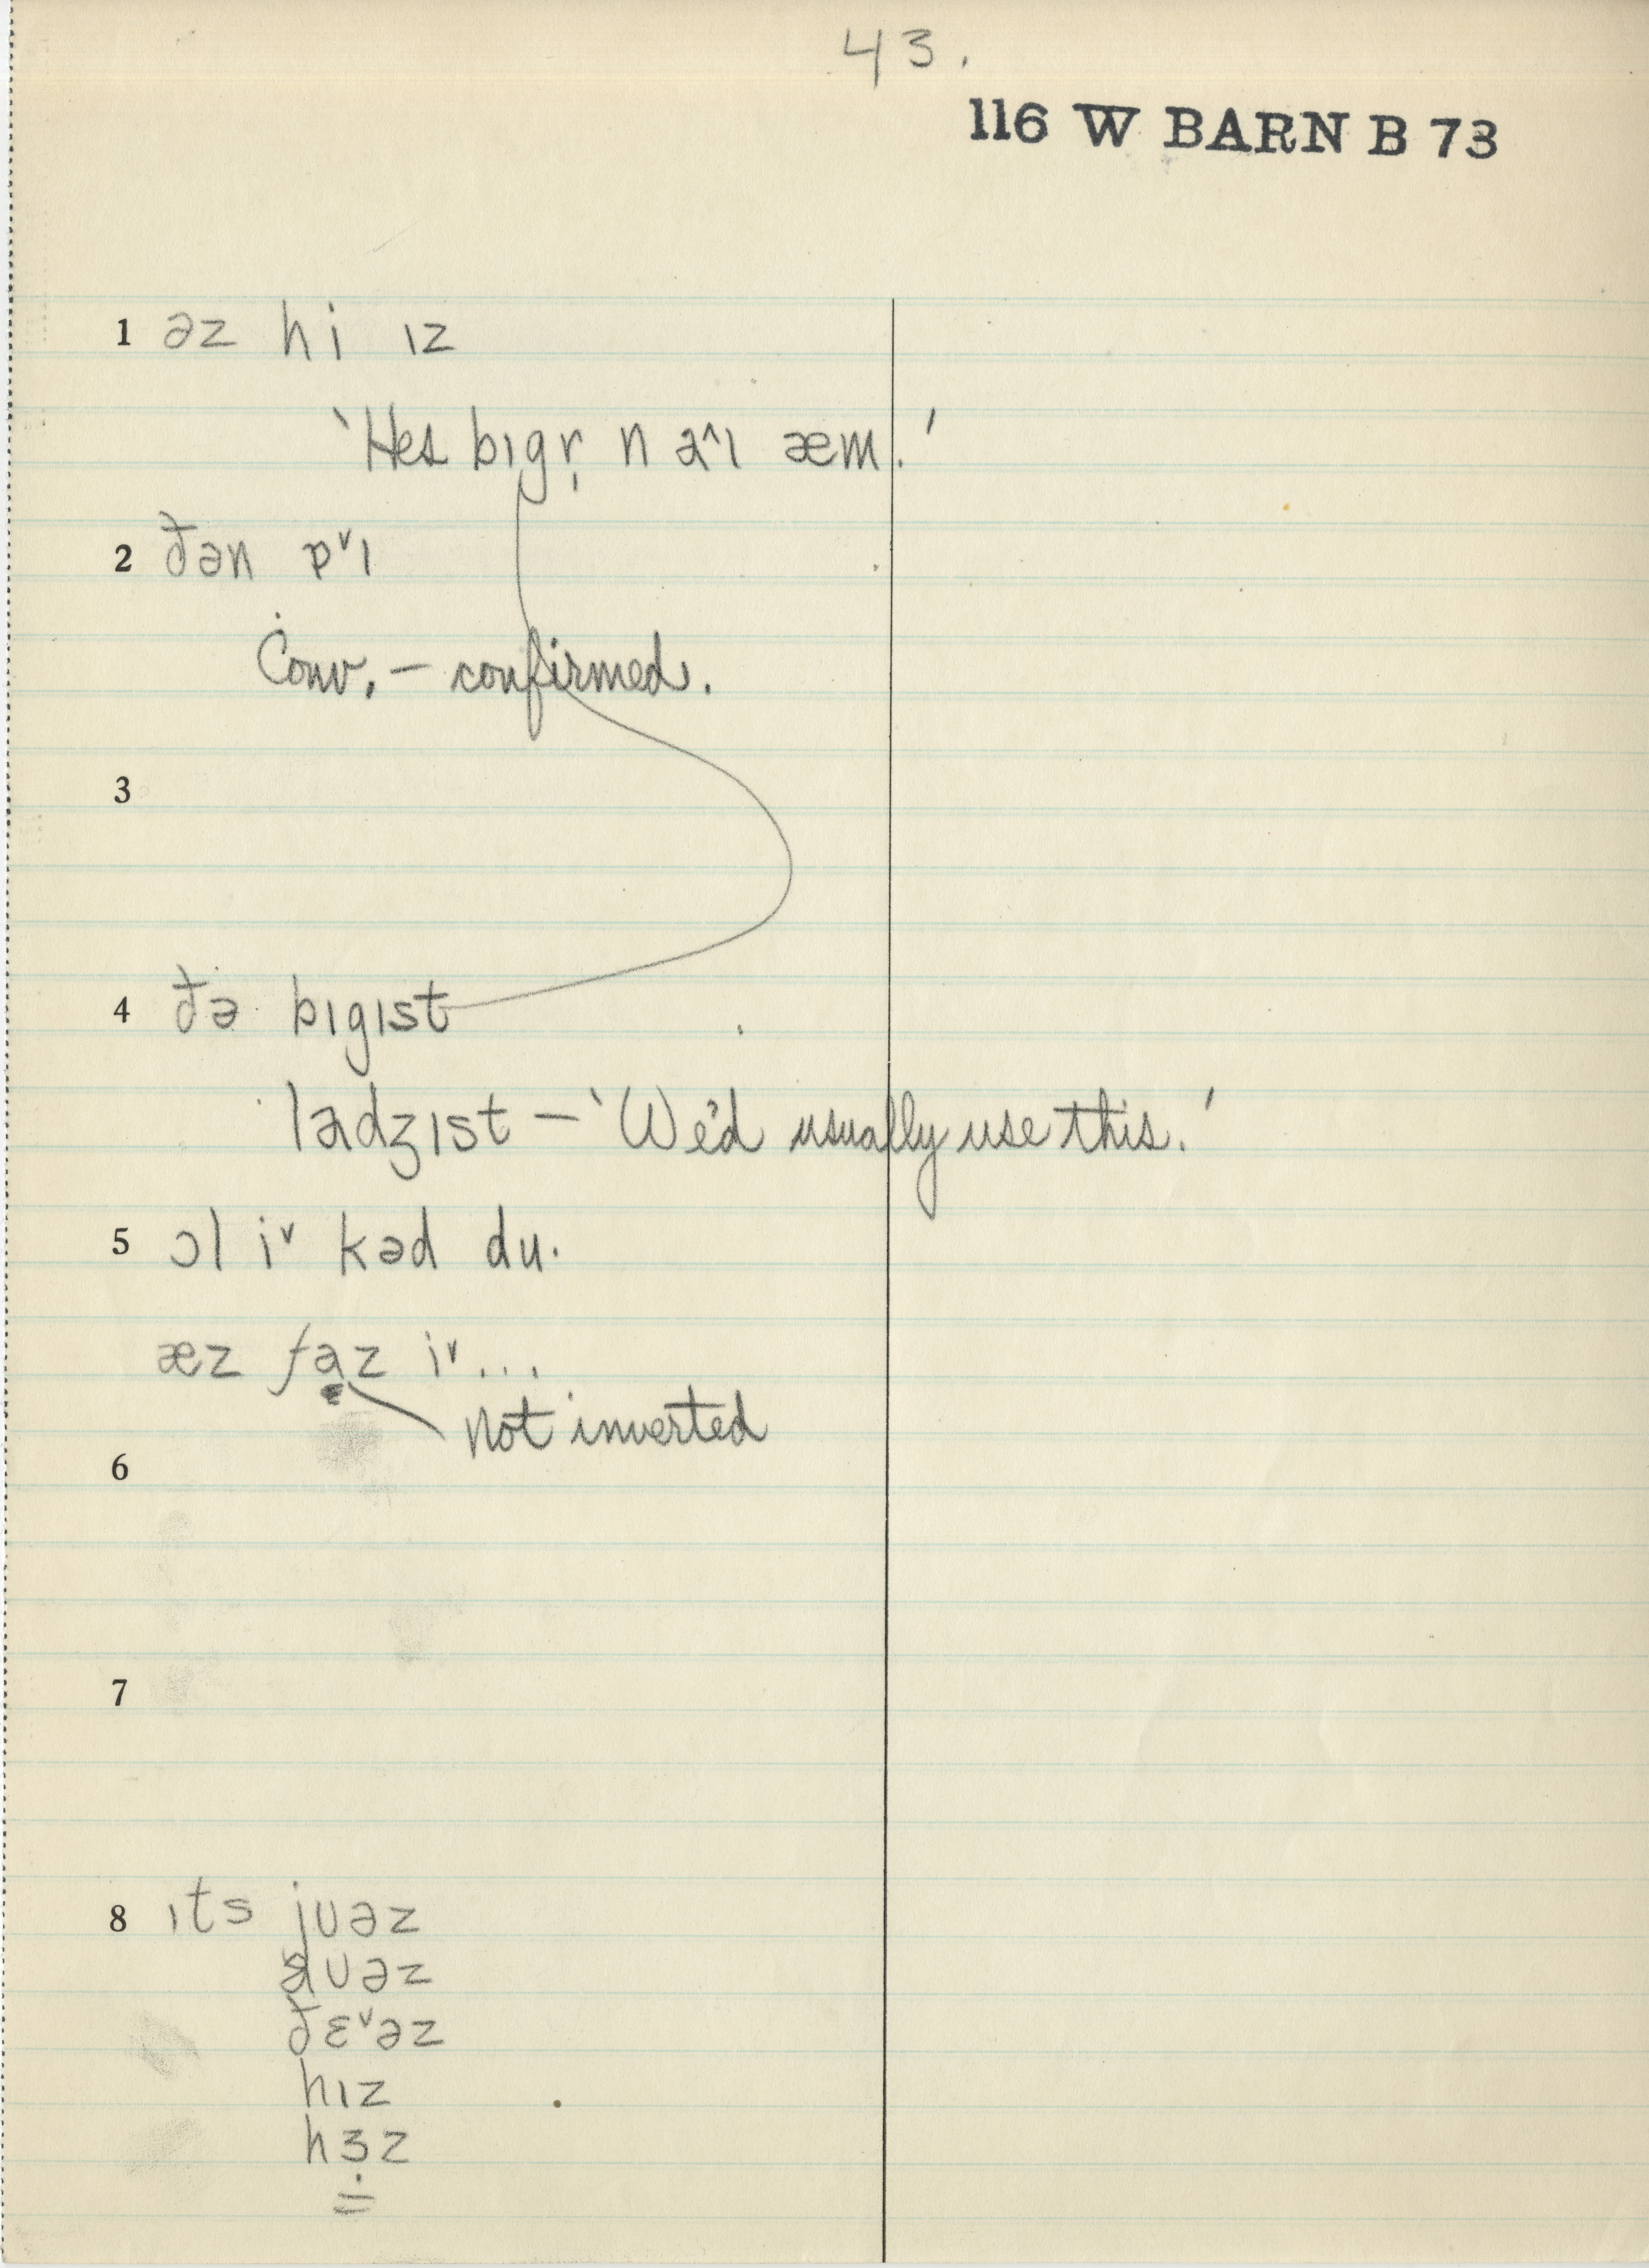 43.
116 W BARN B 73
1 əz hi ɪz
'Hes bɪgr̩ n a^ɪ æm.'
2 ðən p^vɪ
Conv. – confirmed.
3
4 ðə bɪgɪst
ladʒɪst – 'We'd usually use this.'
5 ɔl i^v kəd du.
æz faz i^v...
not inverted
6
7
8 ɪts jʊəz
aʊəz
ðɛ^vəz
hɪz
hɜz